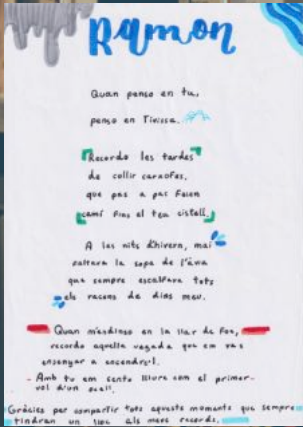 Ramon
Quan penso en tu,
penso en Tivissa.
Recordo les tardes
de collir carxofes,
que pas a pas feien
camí fins el teu cistell.
A les nits d'hivern, mai
faltara la sopa de l'àvia
que sempre escalfava tots
els racons de dins meu.
Quan m'endinso en la llar de foc,
recordo aquella vegada que em vas
ensenyar a encendre'l.
- Amb tu em sento lliure com el primer
vol d'un ocell.
Gràcies per compartir tots aquests moments que sempre
tindran un lloc als meus records.